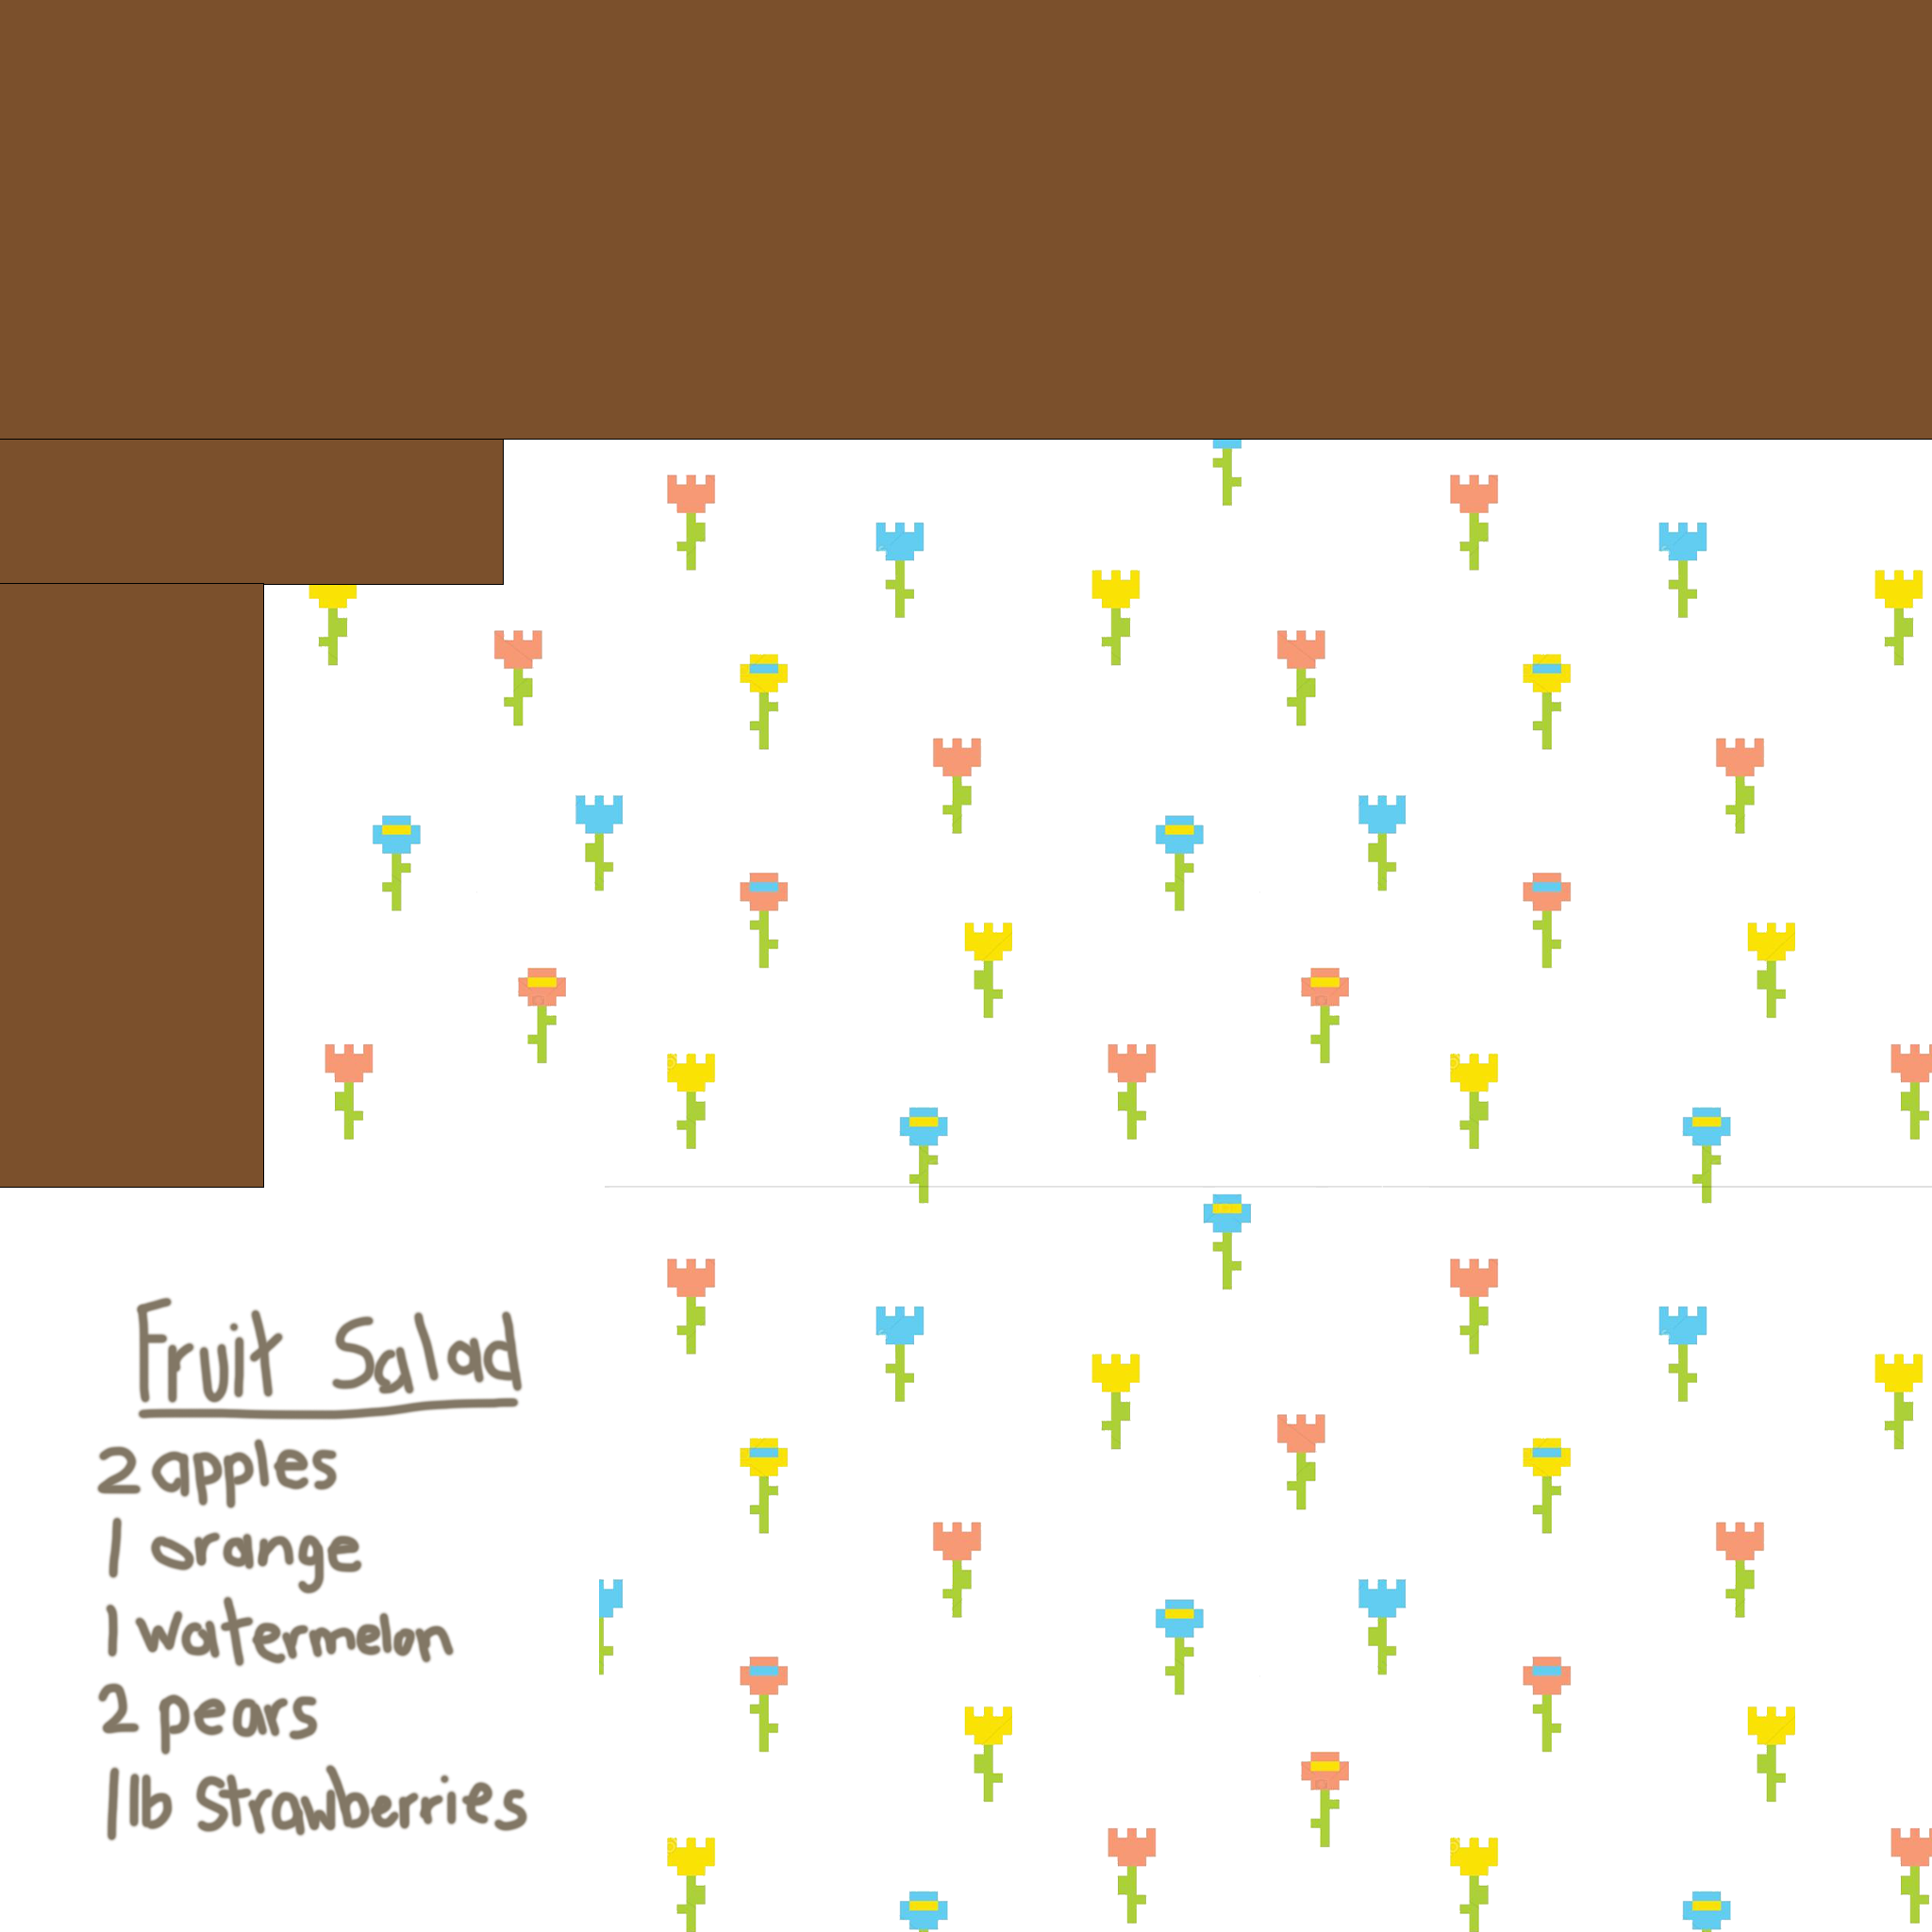 Fruit Salad
2 apples
1 orange
1 watermelon
2 pears
1 lb strawberries